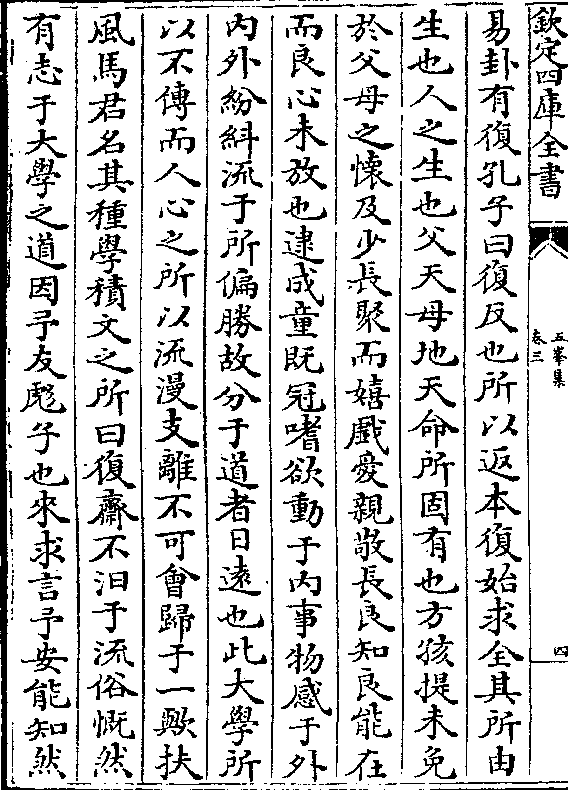 欽定四庫全書
五峯集
卷三
四
易卦有復孔子曰復反也所以返本復始求全其所由
生也人之生也父天母地天命所固有也方孩提未免
於父母之懷及少長聚而嬉戲愛親敬長良知良能在
而良心未放也逮成童既冠嗜欲動于内事物感于外
内外紛糾流于所偏勝故分于道者日遠也此大學所
以不傳而人心之所以流漫支離不可會歸于一歟扶
風馬君名其種學積文之所曰復齋不汩于流俗慨然
有志于大學之道因予友彪子也來求言予安能知然